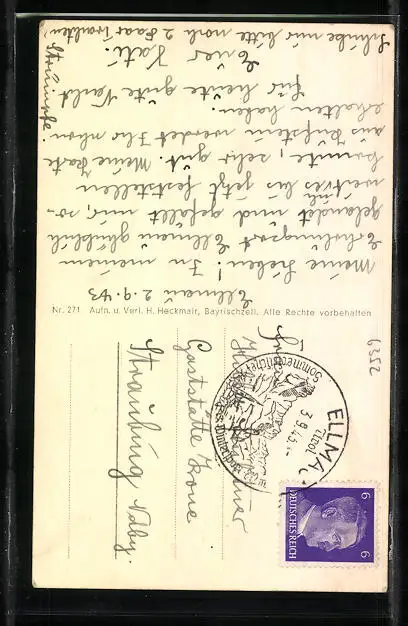 Ellmau 2.9.43
Meine Lieben! In meinem
Erholungsort Ellmau glücklich
gelandet und gefällt mir, so-
weit es bis jetzt feststellen
konnte, sehr gut. Meine Karte
aus Kufstein werdet Ihr schon
erhalten haben.
Für heute gute Nacht
Eure
Kati.
Schicke mir bitte noch 2 Paar
Strümpfe.
Nr. 271 Aufn. u. Verl. H. Heckmair, Bayrischzell. Alle Rechte vorbehalten
6352
Gaststätte Krone
Straubing Ndby.
ELLMAU
Tirol
3.9.43
Sommerfrische
Wintersport
DEUTSCHES REICH
6
6